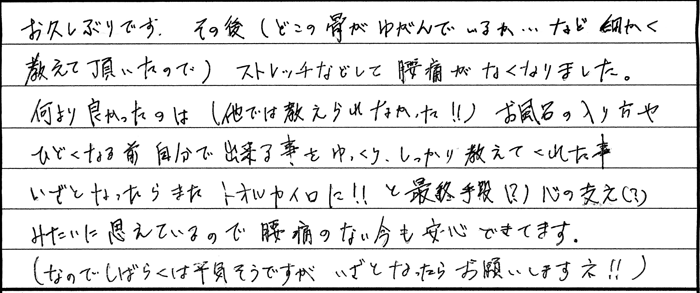 お久しぶりです. その後(どこの骨がゆがんでいるか…など細かく
教えて頂いたので)ストレッチなどして腰痛がなくなりました。
何より良かったのは(他では教えられなかった!!)お風呂の入り方や
ひどくなる前自分で出来る事をゆっくり、しっかり教えてくれた事
いざとなったらまたトオルカイロに!!と最終手段(?)心の支え(?)
みたいに思えているので腰痛のない今も安心できてます.
(なのでしばらくは平気そうですがいざとなったらお願いしますネ!!)